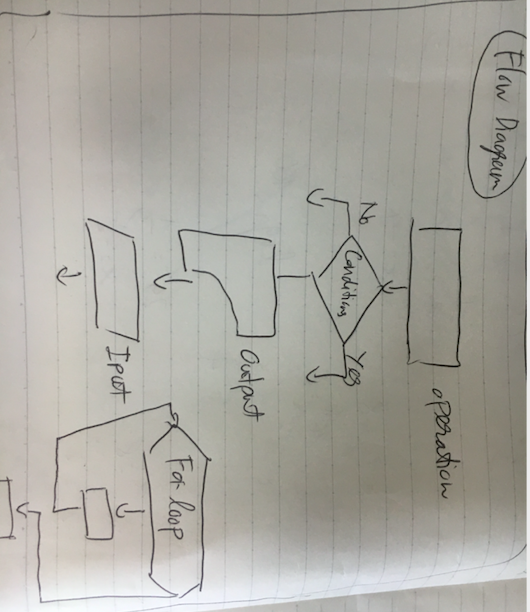 Flow Diagram
operation
No
Conditions
Yes
Output
Input
For loop